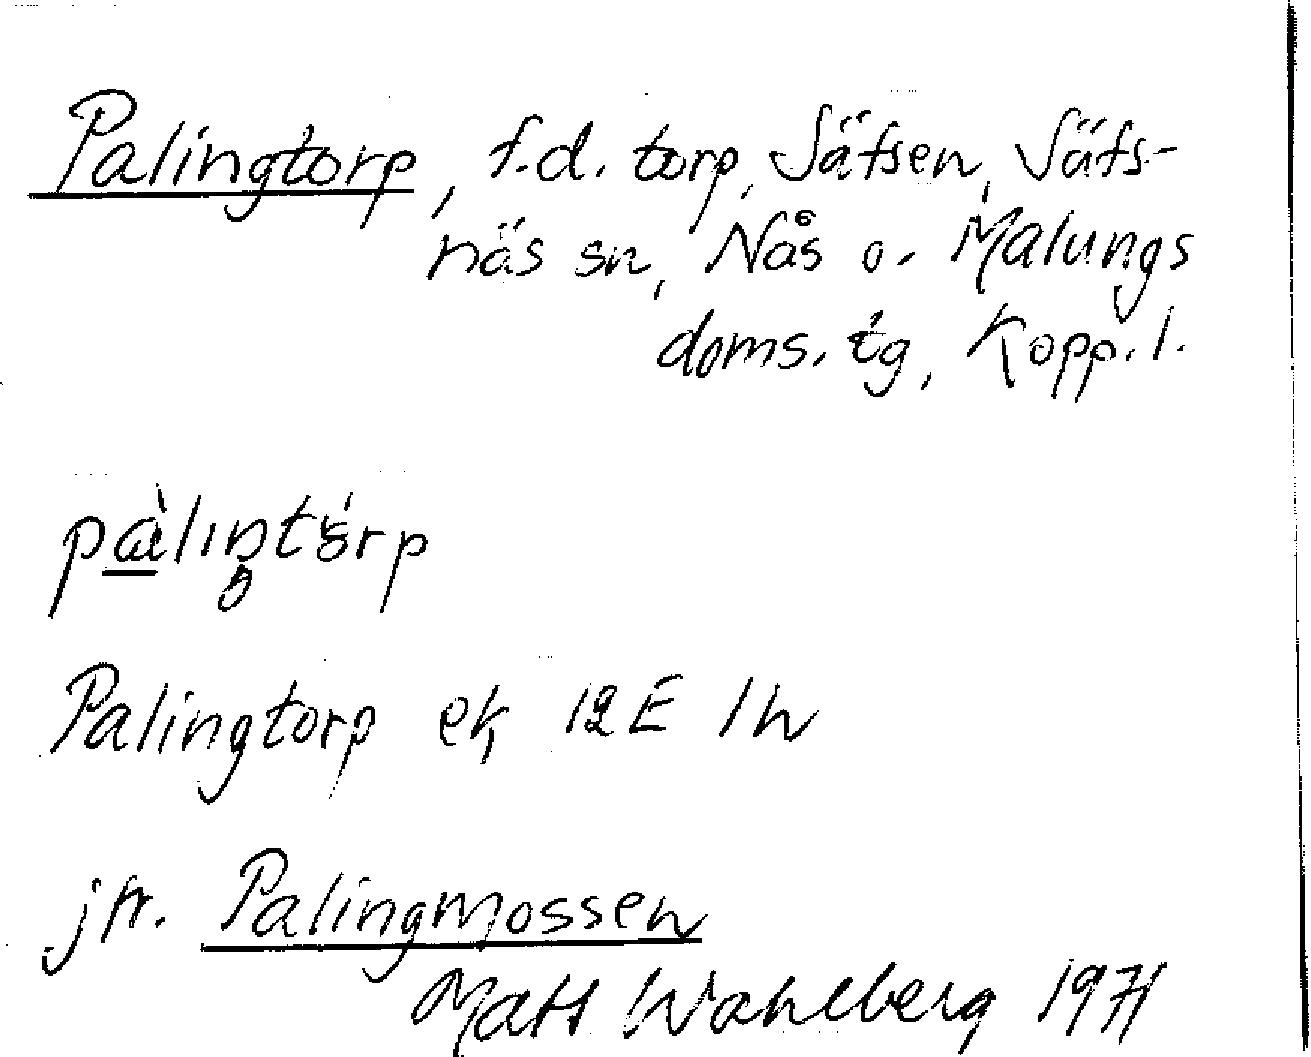 Palingtorp, f.d. torp, Säfsen, Säfs-
näs sn, Nås o. Malungs
doms. tg, Kopp. l.
pàlıŋtórp
Palingtorp ek 12E 1h
jfr. Palingmossen
Mats Wahlberg 1971